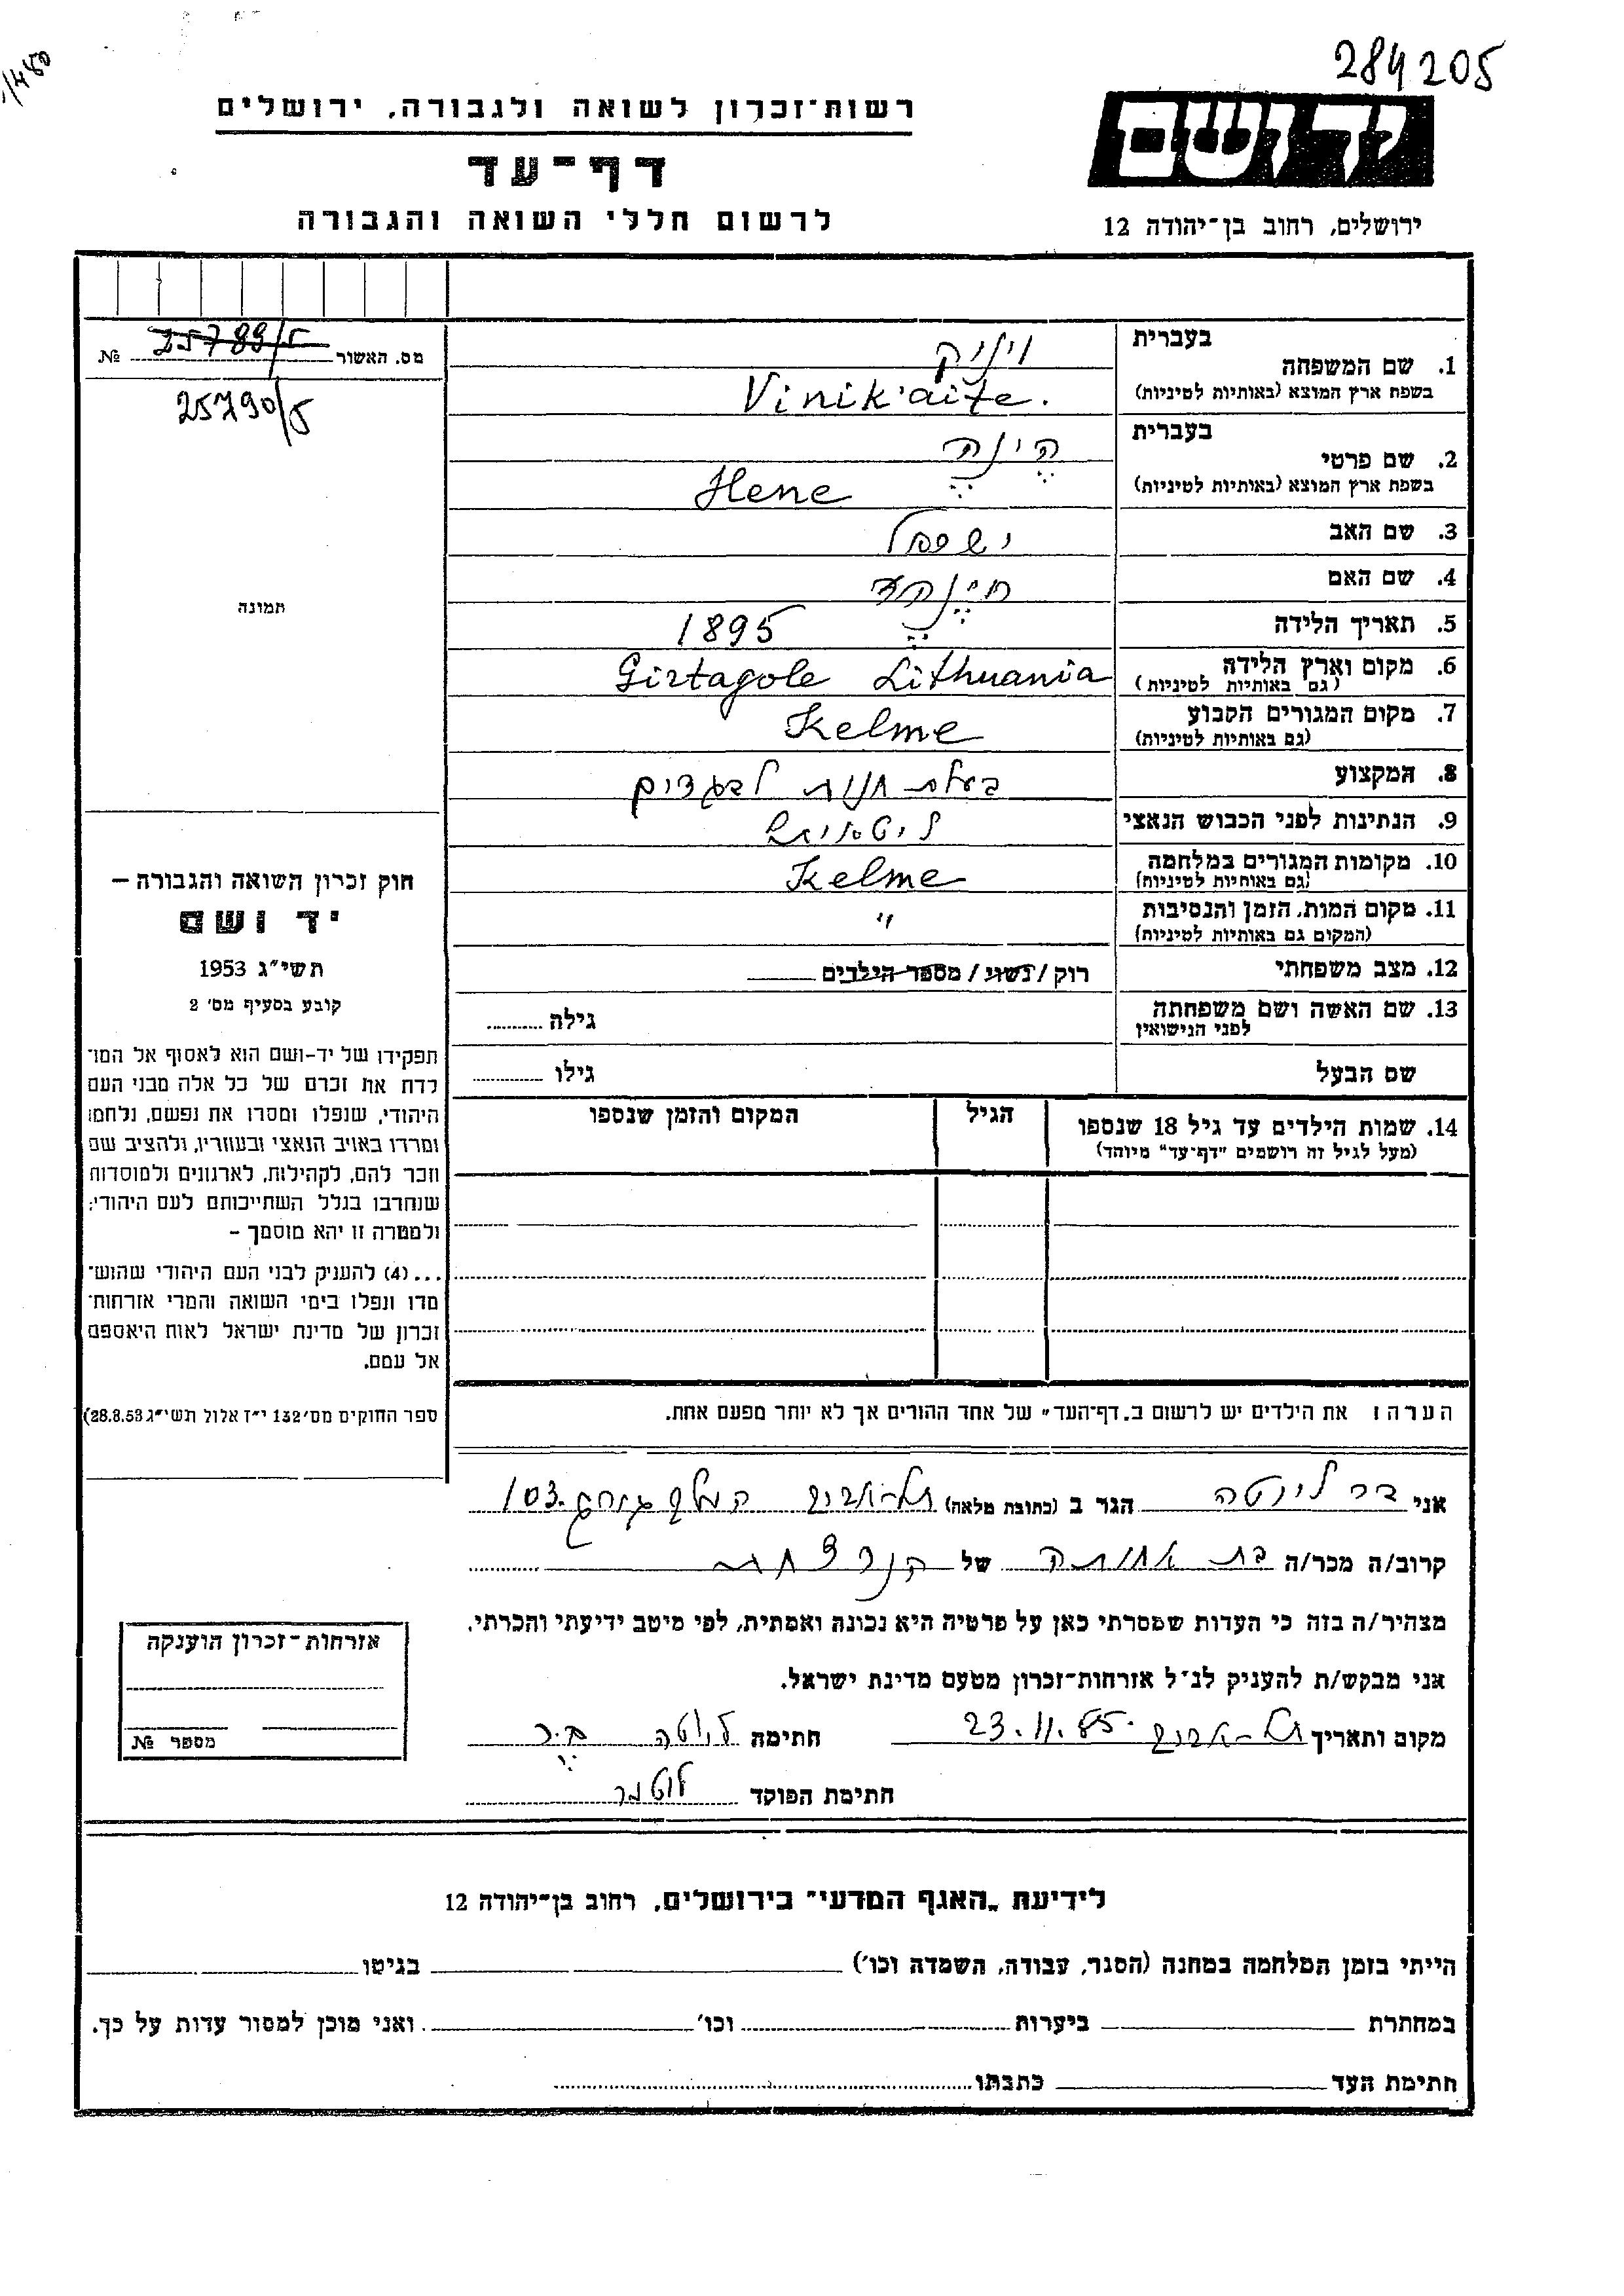 284205
רשות־זכרון לשואה ולגבורה, ירושלים
יד ושם
דף־עד
לרשום חללי השואה והגבורה
ירושלים, רחוב בן־יהודה 12
מס. האשור № 25789/5
25790/5
תמונה
בעברית
ויניק
1. שם המשפחה
בשפת ארץ המוצא (באותיות לטיניות)
Vinik'aite.
בעברית
הינה
2. שם פרטי
בשפת ארץ המוצא (באותיות לטיניות)
Hene
3. שם האב
4. שם האם
5. תאריך הלידה 1895
6. מקום וארץ הלידה Girtagole Lithuania
(גם באותיות לטיניות)
7. מקום המגורים הקבוע Kelme
(גם באותיות לטיניות)
8. המקצוע בעלת חנות לבגדים
9. הנתינות לפני הכבוש הנאצי ליטאית
10. מקומות המגורים במלחמה Kelme
(גם באותיות לטיניות)
11. מקום המות, הזמן והנסיבות "
(המקום גם באותיות לטיניות)
12. מצב משפחתי רוק / נשוי / מספר הילדים
13. שם האשה ושם משפחתה גילה
לפני הנישואין
שם הבעל גילו
14. שמות הילדים עד גיל 18 שנספו הגיל המקום והזמן שנספו
(מעל לגיל זה רושמים "דף־עד" מיוחד)
הערה: את הילדים יש לרשום ב„דף־העד" של אחד ההורים אך לא יותר מפעם אחת.
חוק זכרון השואה והגבורה –
יד ושם
תשי״ג 1953
קובע בסעיף מס׳ 2
תפקידו של יד-ושם הוא לאסוף אל המו־
לדת את זכרם של כל אלה מבני העם
היהודי, שנפלו ומסרו את נפשם, נלחמו
ומרדו באויב הנאצי ובעוזריו, ולהציב שם
וזכר להם, לקהילות, לארגונים ולמוסדות
שנחרבו בגלל השתייכותם לעם היהודי;
ולמטרה זו יהא מוסמך –
...(4) להעניק לבני העם היהודי שהוש־
מדו ונפלו בימי השואה והמרי אזרחות־
זכרון של מדינת ישראל לאות היאספם
אל עמם.
ספר החוקים מס׳ 132 י״ז אלול תשי״ג 28.8.53)
אני בר ליוטה הגר ב (כתובת מלאה) תל-אביב המלך 103.
קרוב/ה מכר/ה בת אחותה של הנרצחת
מצהיר/ה בזה כי העדות שמסרתי כאן על פרטיה היא נכונה ואמתית, לפי מיטב ידיעתי והכרתי.
אני מבקש/ת להעניק לנ״ל אזרחות־זכרון מטעם מדינת ישראל.
מקום ותאריך תל-אביב 23.11.85 חתימה ליוטה בר
חתימת הפוקד
אזרחות־זכרון הוענקה
מספר №
לידיעת „האגף המדעי" בירושלים, רחוב בן־יהודה 12
הייתי בזמן המלחמה במחנה (הסגר, עבודה, השמדה וכו׳) בגיטו
במחתרת ביערות וכו׳ ואני מוכן למסור עדות על כך.
חתימת העד כתבתו